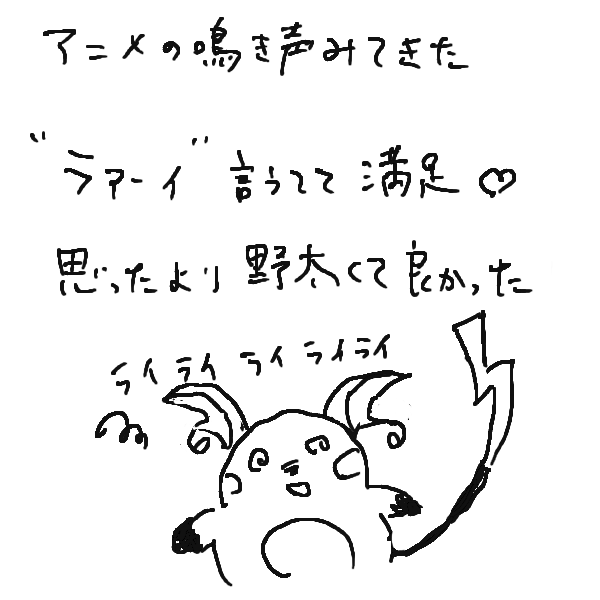 アニメの鳴き声みてきた
"ラァーイ" 言うてて満足♡
思ったより野太くて良かった
ライ ライ ライ ライライ